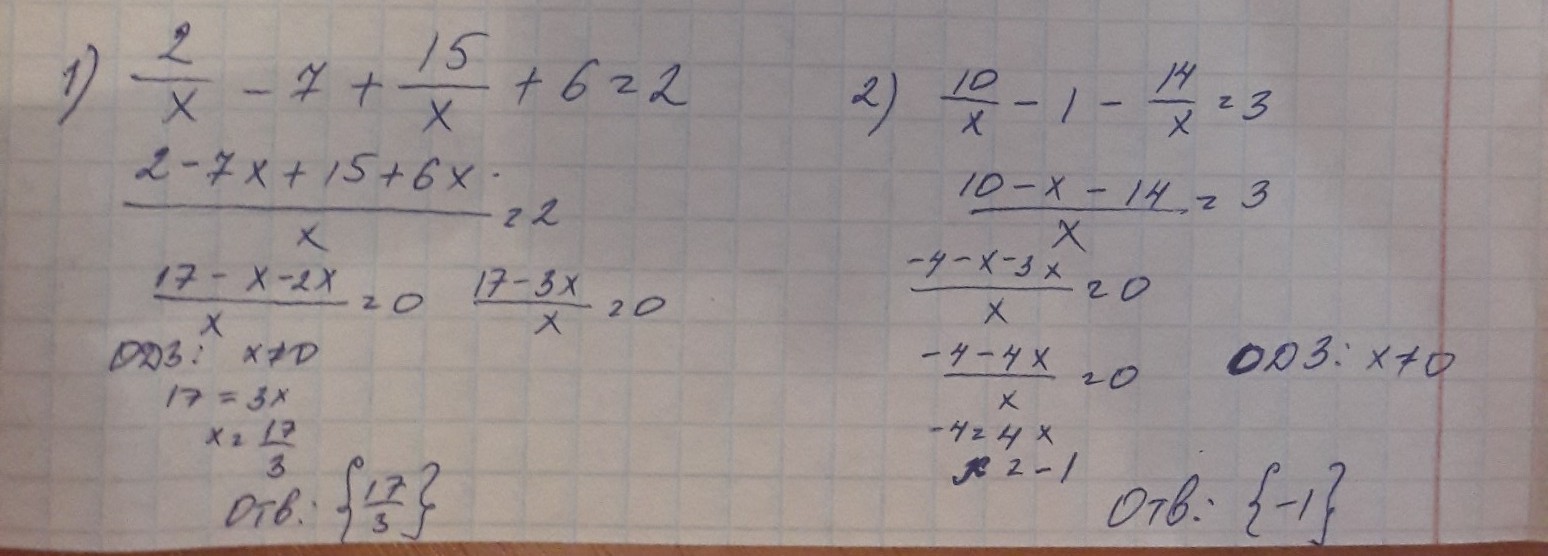 1) 2/x - 7 + 15/x + 6 = 2
(2 - 7x + 15 + 6x)/x = 2
(17 - x - 2x)/x = 0 (17 - 3x)/x = 0
ОДЗ: x ≠ 0
17 = 3x
x = 17/3
Отв.: {17/3}
2) 10/x - 1 - 14/x = 3
(10 - x - 14)/x = 3
(-4 - x - 3x)/x = 0
(-4 - 4x)/x = 0 ОДЗ: x ≠ 0
-4 = 4x
x = -1
Отв.: {-1}